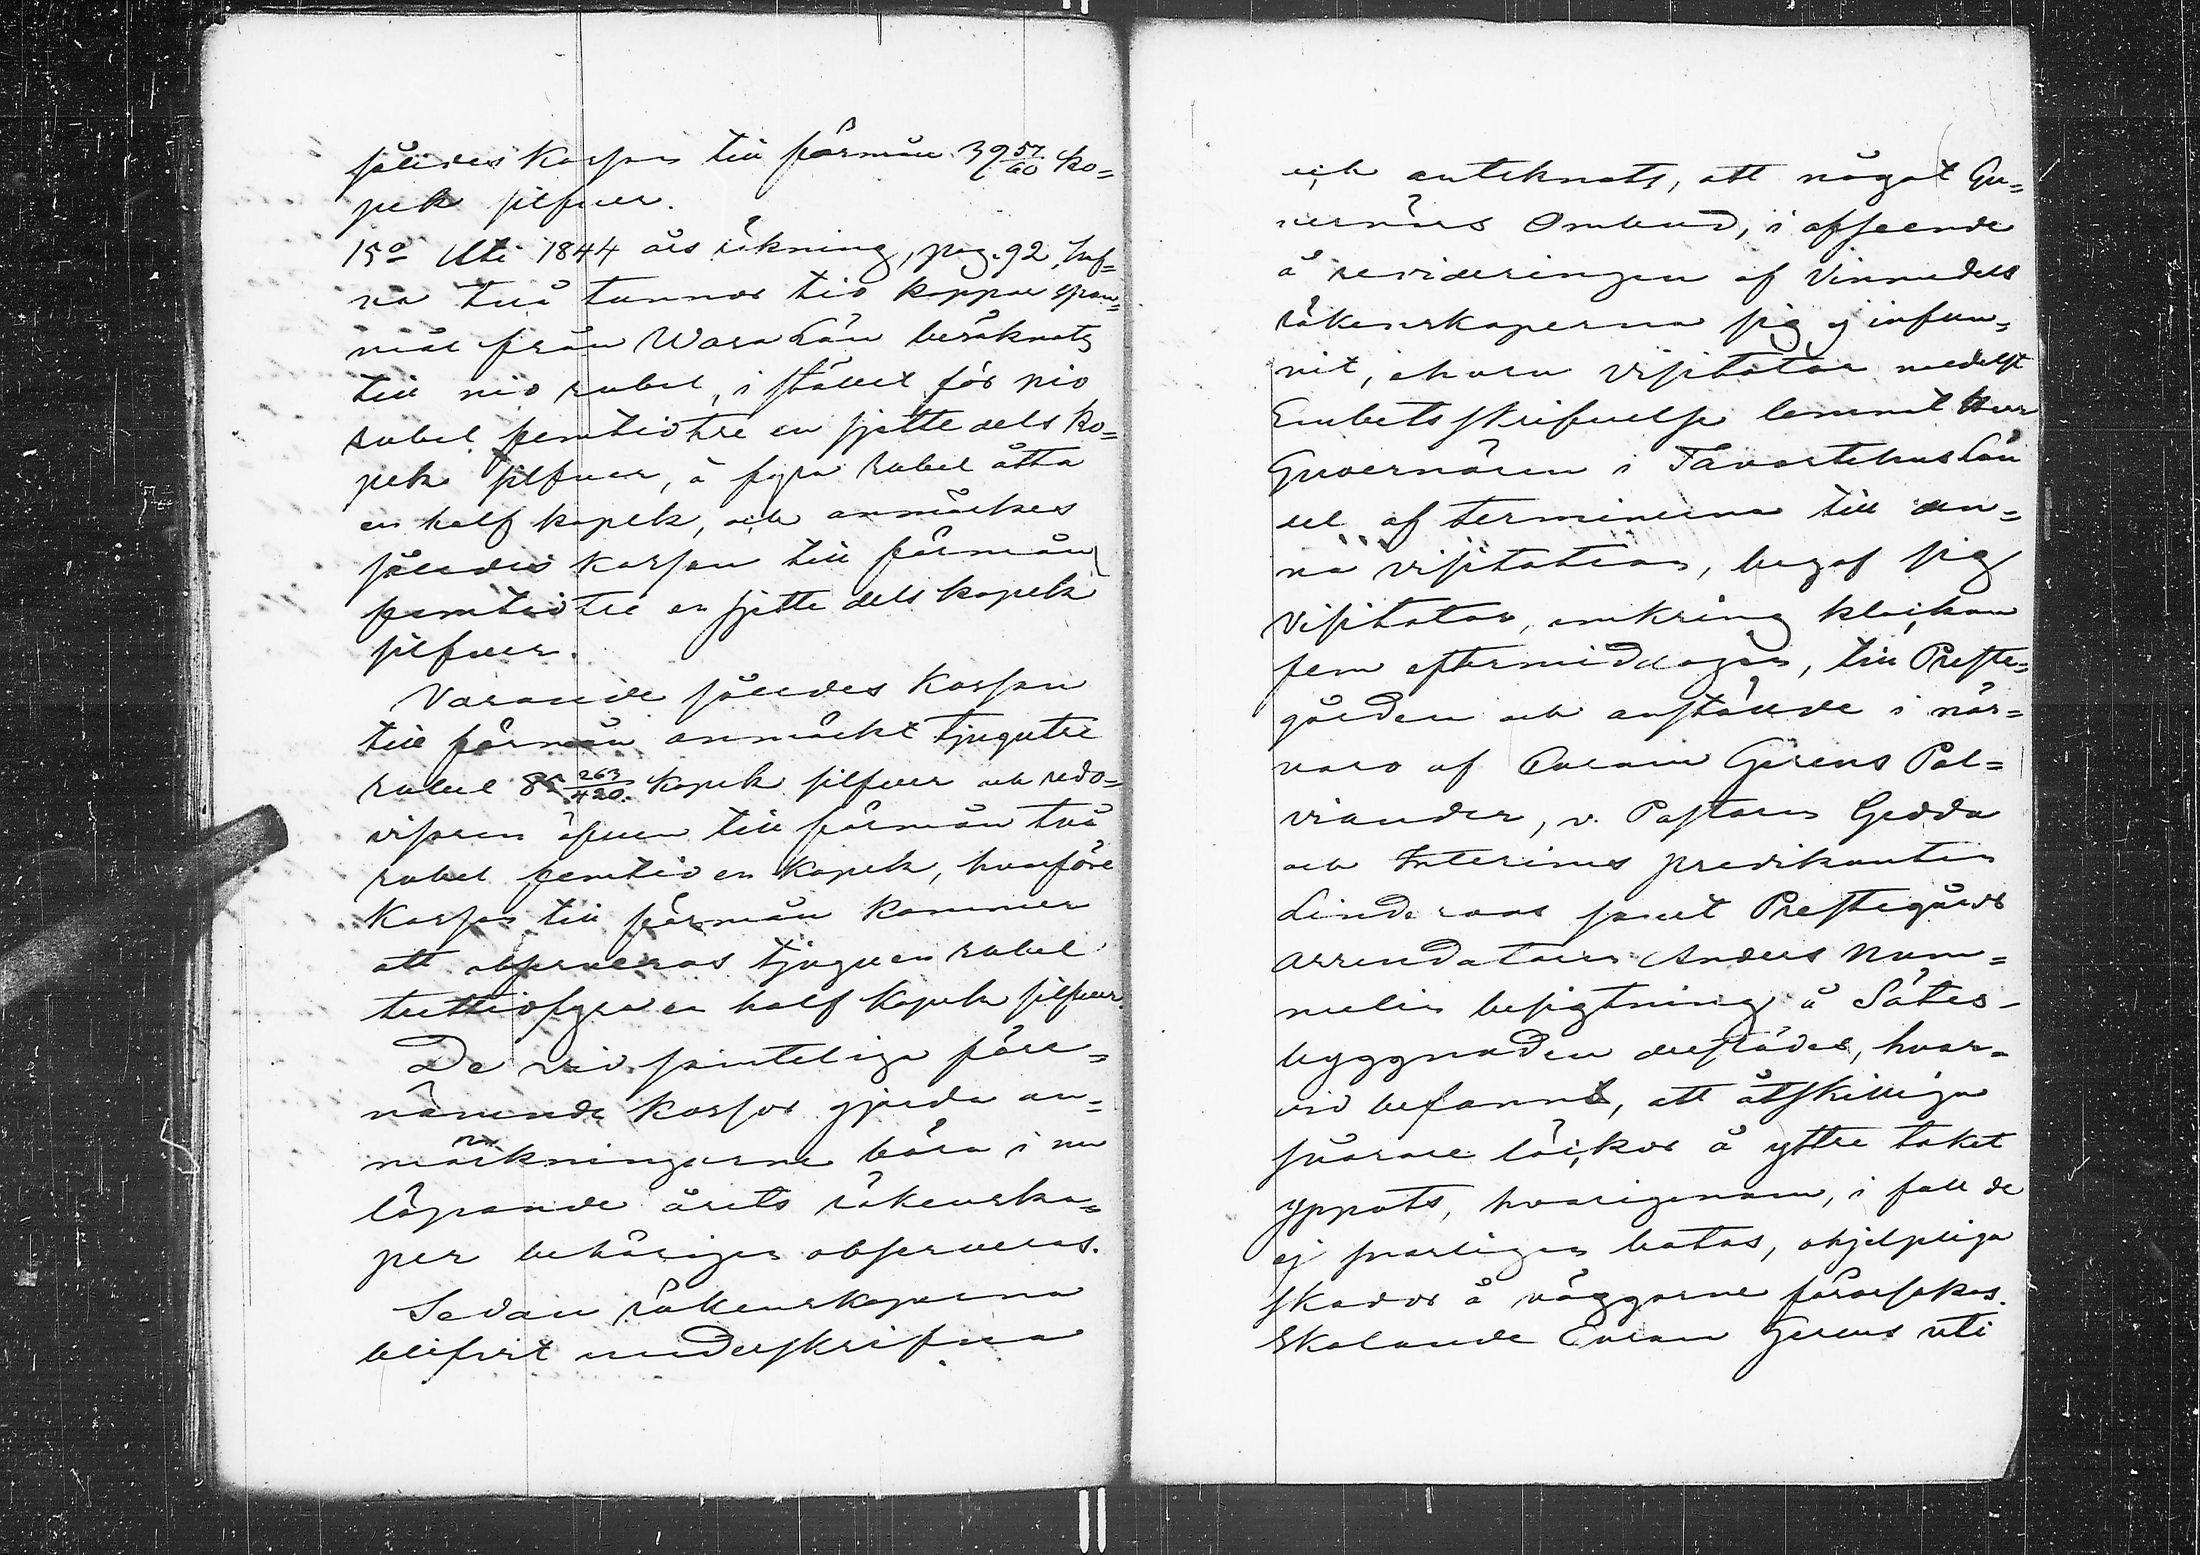 således Kassan till förmån 39 57/60 ko=
pek silfver.
15o Uti 1844 års räkning, pag. 92, haf=
va två tunnor tio kappar span=
mål från Wara Län beräknats
till nio rubel, i stället för nio
rubel femtiotre en sjette dels ko=
pek silfver, à fyra rubel åtta
en half kopek, och anmärkes
således Kassan till förmån
femtiotre en sjette dels kopek
silfver.
Varande således Kassan
till förmån anmärkt tjugutre
rubel 85 263/420 kopek silfver och redo=
visaren äfven till förmån två
rubel femtio en kopek, hvarföre
Kassan till förmån kommer
att observeras tjuguen rubel
trettiofyra en half kopek silfver.
De vid samteliga före=
nämnde kassor gjorda an=
märkningarne böra i nu
löpande årets räkenska=
per behörigen observeras.
Sedan räkenskaperna
blifvit underskrifna
och antecknats, att något Gu=
vernörs Ombud, i afseende
å revideringen af Vinmedels
räkenskaperna sig ej infun=
nit, ehuru Visitator medelst
Embetsskrifvelse lemnat Herr
Guvernören i Tavastehus Län
del af terminerna till den=
na visitation, begaf sig
Visitator, omkring klockan
fem eftermiddagen, till Preste=
gården och anställde i när=
varo af Curam Gerens Pal=
viander, v. Pastorn Gedda
och Interims predikanten
Linderoos samt Prestegårds
arrendatorn Anders Num=
melin besigtning å Sätes-
byggnaden derstädes, hvar=
vid befanns, att åtskilliga
svårare läckor å yttre taket
yppats, hvarigenom, i fall de
ej snarligen botas, ohjelpliga
skador å väggarne förorsakas.
Skolande Curam Gerens uti